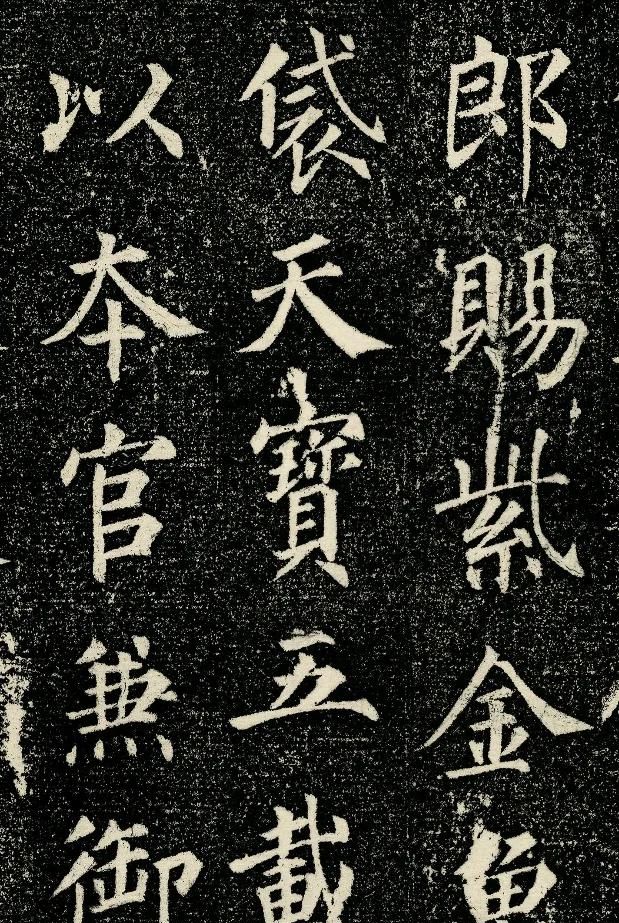 郎賜紫金魚
袋天寶五載
以本官兼御